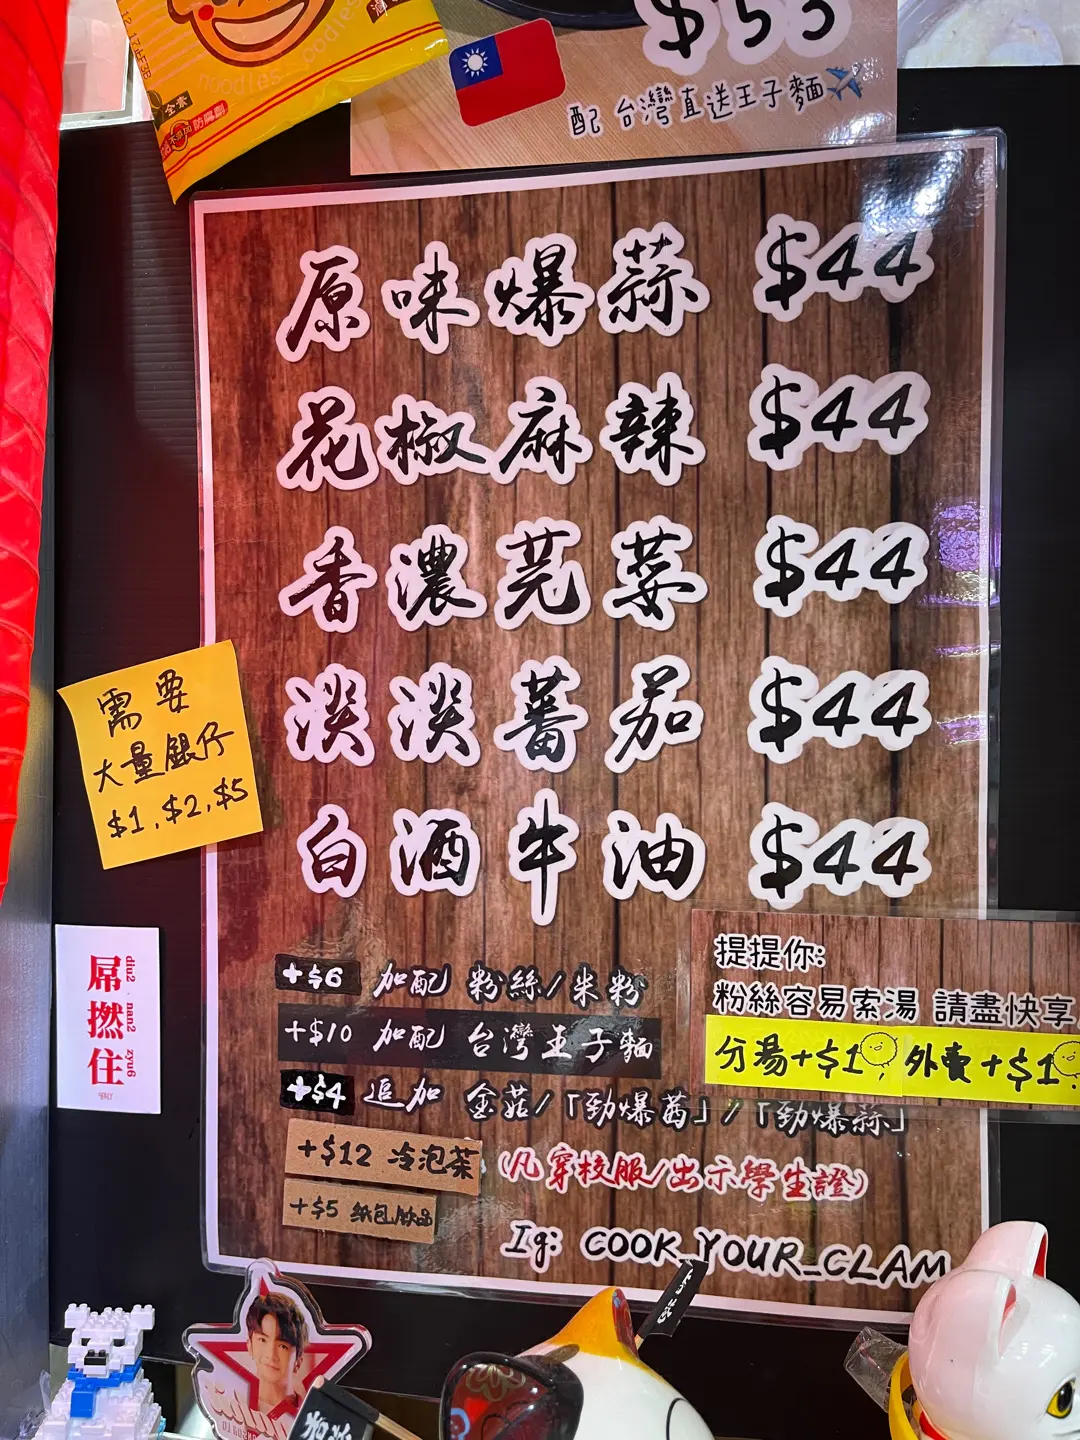 $55
配 台灣直送王子麵
noodles noodles
全素
防腐劑
原味爆蒜 $44
花椒麻辣 $44
香濃芫荽 $44
淡淡蕃茄 $44
白酒牛油 $44
需要
大量銀仔
$1, $2, $5
屌撚住
diu2 nan2 zyu6
+$6 加配 粉絲/米粉
+$10 加配 台灣王子麵
+$4 追加 金菇/「勁爆茜」/「勁爆蒜」
+$12 冷泡茶
+$5 紙包飲品
(凡穿校服/出示學生證)
Ig: COOK_YOUR_CLAM
提提你:
粉絲容易索湯 請盡快享
分湯+$1, 外賣+$1.